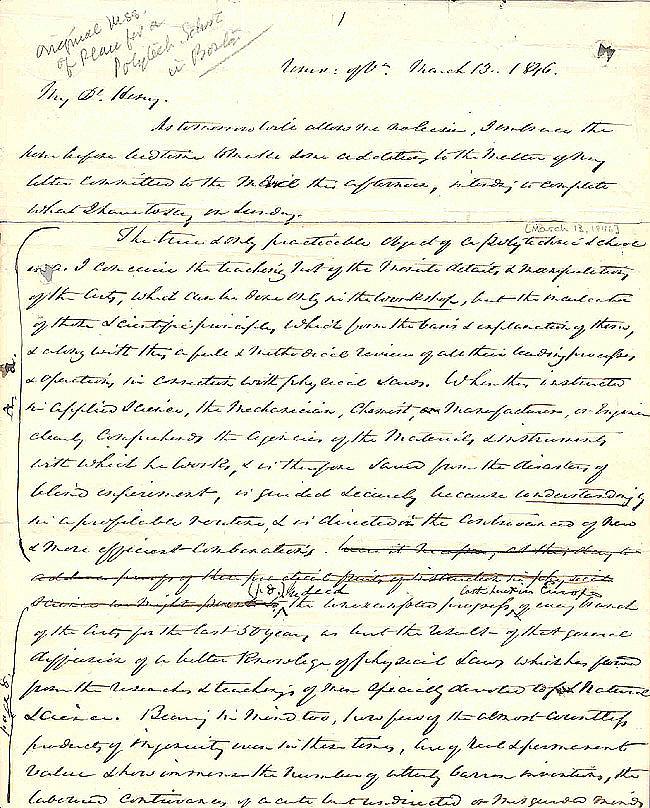 1
original Mss.
of Plan for a
Polytech School
in Boston
Univ: of Va. March 13. 1846.
My Dr. Henry.
As tomorrow will allow me no leisure, I embrace the
hour before bedtime to make some additions to the matter of my
letter committed to the Mail this afternoon, intending to complete
what I have to say on Sunday.
[March 13, 1846]
The true & only practicable object of a polytechnic school
is as I conceive the teaching not of the minute details & manipulations
of the arts, which can be done only in the workshop, but the inculcation
of those scientific principles which form the basis & explanation of them,
& along with this, a full & methodical review of all their leading processes
& operations in connection with physical laws. When thus instructed
in applied science, the Mechanician, Chemist, Manufacturer, or Engineer
clearly comprehends the agencies of the materials & instruments
with which he works, & is therefore saved from the disasters of
blind experiment, is guided securely because understandingly
in a profitable routine, & is directed in the contrivance of new
& more efficient combinations. were it needful, at this day to
proofs of the practical fruits of instruction in physical
science we might
(p. 8.) Indeed
both just in Europe
the unexampled progress, of every branch
of the arts for the last 50 years, is but the result of that general
diffusion of a better knowledge of physical laws which has
from the researches & teachings of men specially devoted to Natural
Science. Bearing in mind too, how few of the almost countless
products of ingenuity even in these times, are of real & permanent
value & how immense the number of utterly barren inventions, the
laboured contrivances of acute but undirected or misguided minds
page 8.